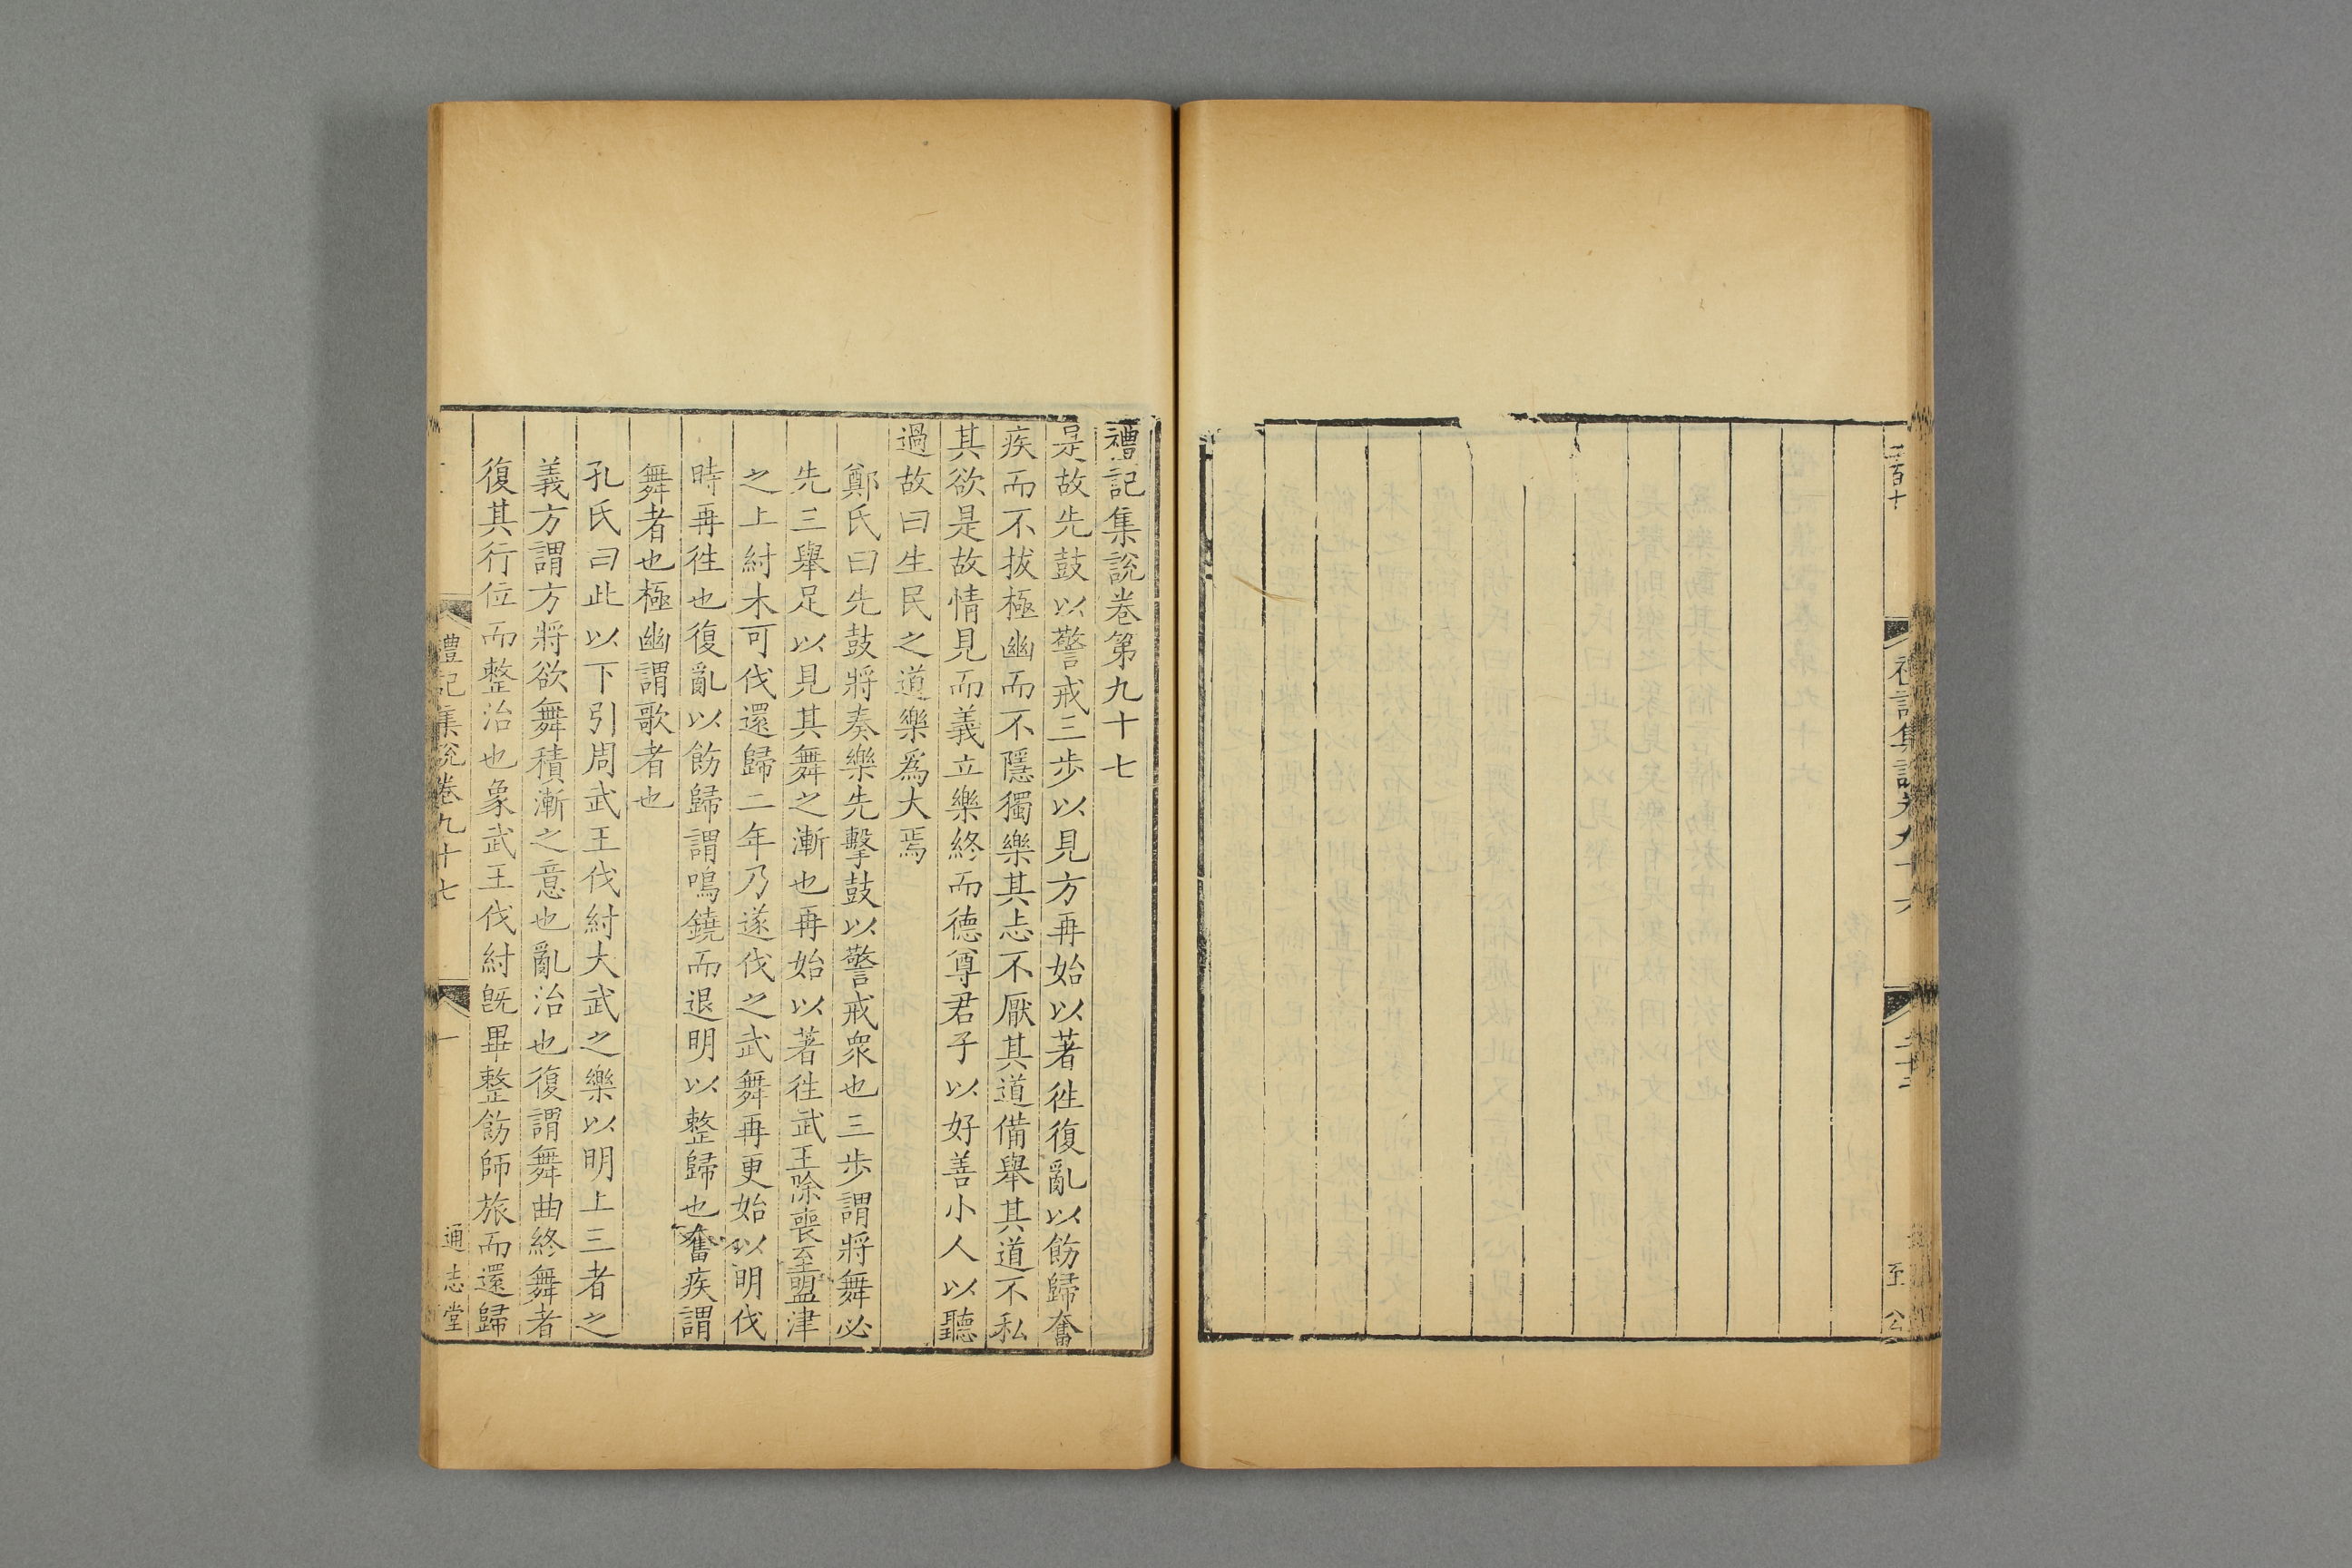 三百十
禮記集說卷九十六
二十三
至公
禮記集說卷第九十七
是故先鼓以警戒三步以見方再始以著徃復亂以飭歸奮
疾而不拔極幽而不隱獨樂其志不厭其道備舉其道不私
其欲是故情見而義立樂終而德尊君子以好善小人以聽
過故曰生民之道樂爲大焉
鄭氏曰先鼓將奏樂先擊鼓以警戒衆也三步謂將舞必
先三舉足以見其舞之漸也再始以著徃武王除喪至盟津
之上紂未可伐還歸二年乃遂伐之武舞再更始以明伐
時再徃也復亂以飭歸謂鳴鐃而退明以整歸也奮疾謂
舞者也極幽謂歌者也
孔氏曰此以下引周武王伐紂大武之樂以明上三者之
義方謂方將欲舞積漸之意也亂治也復謂舞曲終舞者
復其行位而整治也象武王伐紂旣畢整飭師旅而還歸
禮記集說卷九十七
一
通志堂